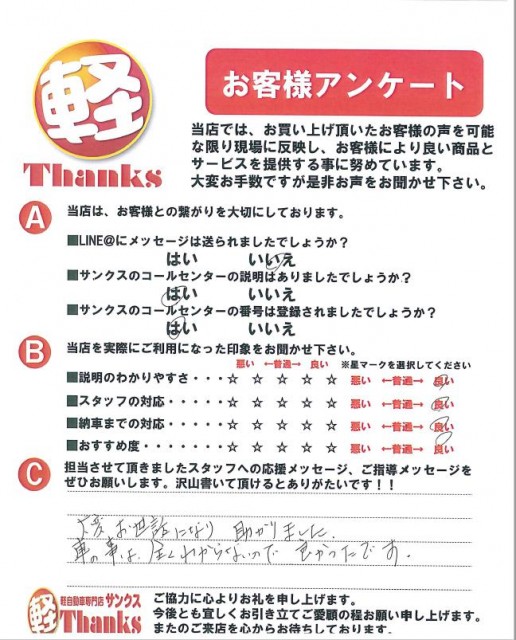 軽
Thanks
お客様アンケート
当店では、お買い上げ頂いたお客様の声を可能
な限り現場に反映し、お客様により良い商品と
サービスを提供する事に努めています。
大変お手数ですが是非お声をお聞かせ下さい。
A 当店は、お客様との繋がりを大切にしております。
■LINE@にメッセージは送られましたでしょうか？
はい いいえ
■サンクスのコールセンターの説明はありましたでしょうか？
はい いいえ
■サンクスのコールセンターの番号は登録されましたでしょうか？
はい いいえ
B 当店を実際にご利用になった印象をお聞かせ下さい。
悪い ←普通→ 良い ※星マークを選択してください
■説明のわかりやすさ・・・・☆ ☆ ☆ ☆ ☆ 悪い ←普通→ 良い
■スタッフの対応・・・・・・☆ ☆ ☆ ☆ ☆ 悪い ←普通→ 良い
■納車までの対応・・・・・・☆ ☆ ☆ ☆ ☆ 悪い ←普通→ 良い
■おすすめ度・・・・・・・・☆ ☆ ☆ ☆ ☆ 悪い ←普通→ 良い
C 担当させて頂きましたスタッフへの応援メッセージ、ご指導メッセージを
ぜひお願いします。沢山書いて頂けるとありがたいです！！
大変お世話になり 助かりました。
車の事は、全くわからないので 良かったです。
軽 軽自動車専門店 サンクス
Thanks
ご協力に心よりお礼を申し上げます。
今後とも宜しくお引き立てご愛顧の程お願い申し上げます。
またのご来店を心からお待ちしております。